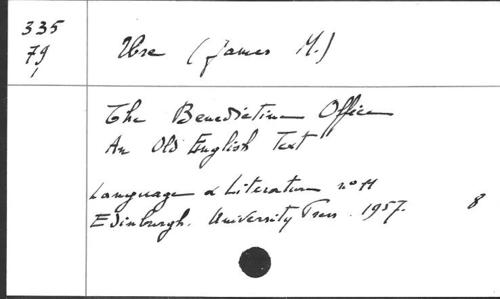 335
79
Ure (James M.)
The Benedictine Office
An Old English Text
Language & Literature n° 11
Edinburgh. University Press. 1957. 8